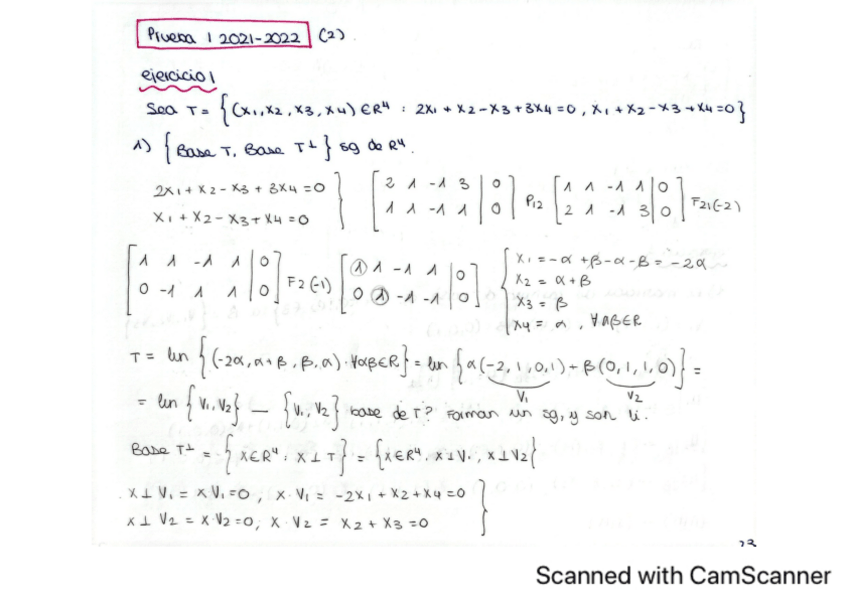 Prueba 1 2021-2022 (2)
ejercicio 1
Sea T = {(x1, x2, x3, x4) ∈ R⁴ : 2x1 + x2 - x3 + 3x4 = 0, x1 + x2 - x3 + x4 = 0}
1) {Base T, Base T⊥} sg de R⁴.
2x1 + x2 - x3 + 3x4 = 0 } [2 1 -1 3 | 0] P12 [1 1 -1 1 | 0] F21(-2)
x1 + x2 - x3 + x4 = 0 } [1 1 -1 1 | 0] [2 1 -1 3 | 0]
[1 1 -1 1 | 0] F2(-1) [1 1 -1 1 | 0] { x1 = -α + β - α - β = -2α
[0 -1 1 1 | 0] [0 1 -1 -1 | 0] x2 = α + β
x3 = β
x4 = α, ∀αβ∈R
T = lin {(-2α, α+β, β, α) · ∀αβ∈R} = lin {α(-2, 1, 0, 1) + β(0, 1, 1, 0)} =
V1 V2
= lin {V1, V2} — {V1, V2} base de T? Forman un sg, y son li.
Base T⊥ = {x∈R⁴ : x ⊥ T} = {x∈R⁴. x⊥V1, x⊥V2}
x ⊥ V1 = x V1 = 0, x · V1 = -2x1 + x2 + x4 = 0 }
x ⊥ V2 = x · V2 = 0; x · V2 = x2 + x3 = 0
23
Scanned with CamScanner